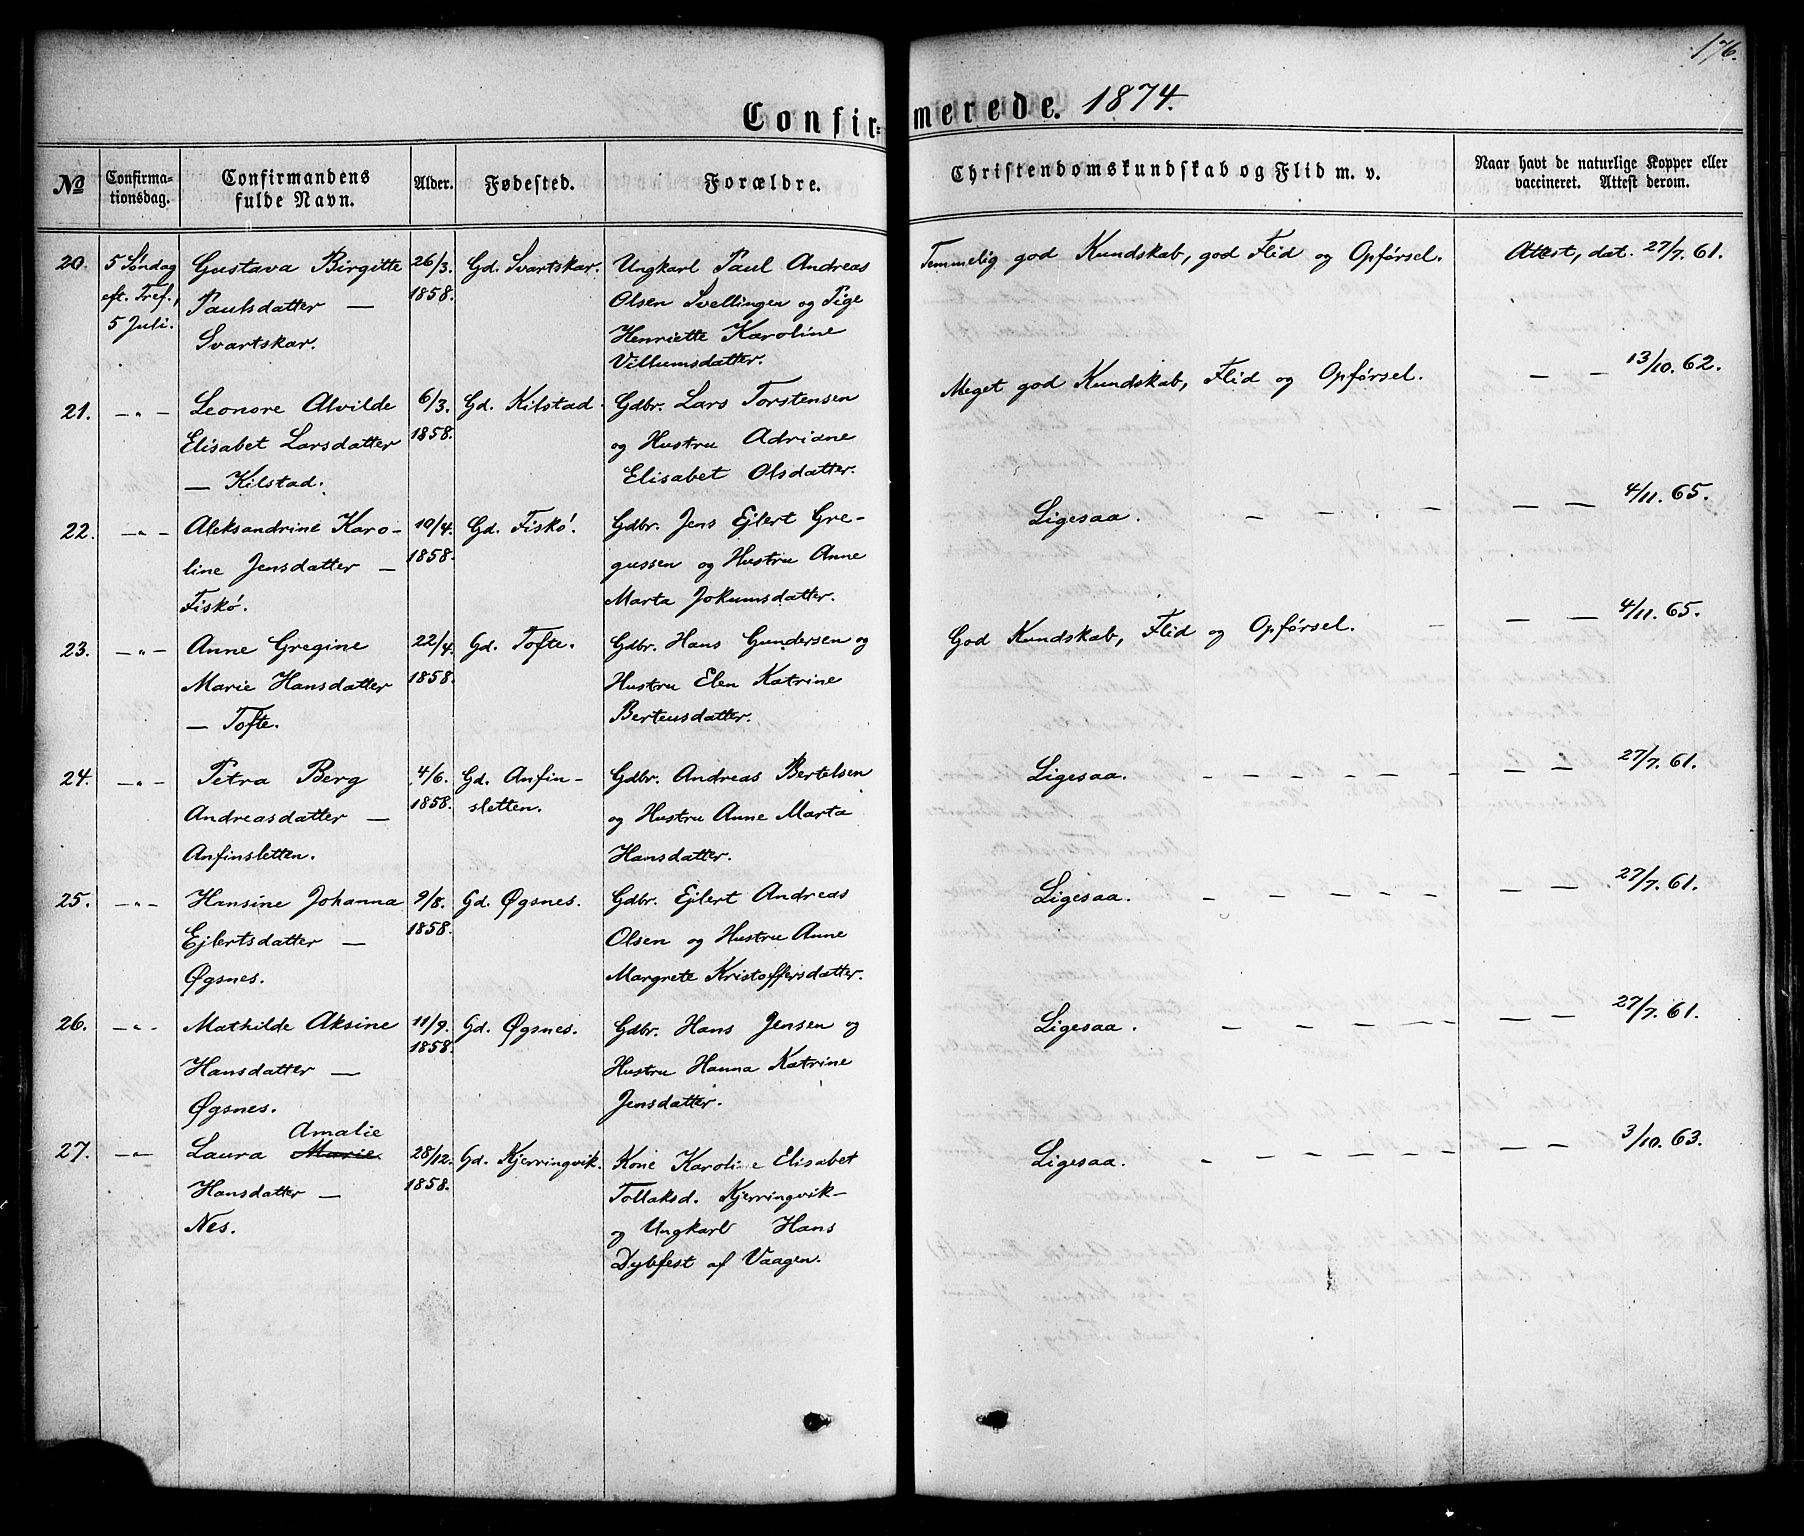 176.
Confirmerede. 1874.
No
Confirmationsdag.
Confirmandens fulde Navn.
Alder.
Fødested.
Forældre.
Christendomskundskab og Flid m. v.
Naar havt de naturlige Kopper eller vaccineret. Attest derom.
20. 5 Søndag Gustava Birgitte 26/3. Gd. Svartskar. Ungkarl Paul Andreas Temmelig god Kundskab, god Flid og Opførsel. Attest, dat. 27/7. 61.
eft. Tref., Paulsdatter — 1858. Olsen Svellingen og Pige
5 Juli. Svartskar. Henriette Karoline
Villumsdatter.
21. — „ — Leonore Alvilde 6/3. Gd. Kilstad. Gdbr. Lars Torstensen Meget god Kundskab, Flid og Opførsel. — — 13/10. 62.
Elisabet Larsdatter 1858. og Hustru Adriane
— Kilstad. Elisabet Olsdatter.
22. — „ — Aleksandrine Karo- 10/4. Gd. Fiskø. Gdbr. Jens Ejlert Gre- Ligesaa. — — — — — — 4/11. 65.
line Jensdatter — 1858. gussen og Hustru Anne
Fiskø. Marta Jokumsdatter.
23. — „ — Anne Gregine 22/4. Gd. Tofte. Gdbr. Hans Gundersen og God Kundskab, Flid og Opførsel. — — — 4/11. 65.
Marie Hansdatter 1858. Hustru Elen Katrine
— Tofte. Berteusdatter.
24. — „ — Petra Berg 4/6. Gd. Anfin- Gdbr. Andreas Bertelsen Ligesaa. — — — — — — — — 27/7. 61.
Andreasdatter — 1858. sletten. og Hustru Anne Marta
Anfinsletten. Hansdatter.
25. — „ — Hansine Johanna 9/8. Gd. Øgsnes. Gdbr. Ejlert Andreas Ligesaa. — — — — — — — 27/7. 61.
Ejlertsdatter — 1858. Olsen og Hustru Anne
Øgsnes. Margrete Kristoffersdatter.
26. — „ — Mathilde Aksine 11/9. Gd. Øgsnes. Gdbr. Hans Jensen og Ligesaa. — — — — — — — 27/7. 61.
Hansdatter — 1858. Hustru Hanna Katrine
Øgsnes. Jensdatter.
Amalie
27. — „ — Laura Marie 28/12. Gd. Kjerringvik. Kone Karoline Elisabet Ligesaa. — — — — — — — — 3/10. 63.
Hansdatter — 1858. Tollaksd. Kjerringvik —
Nes. og Ungkarl Hans
Dybfest af Vaagen.